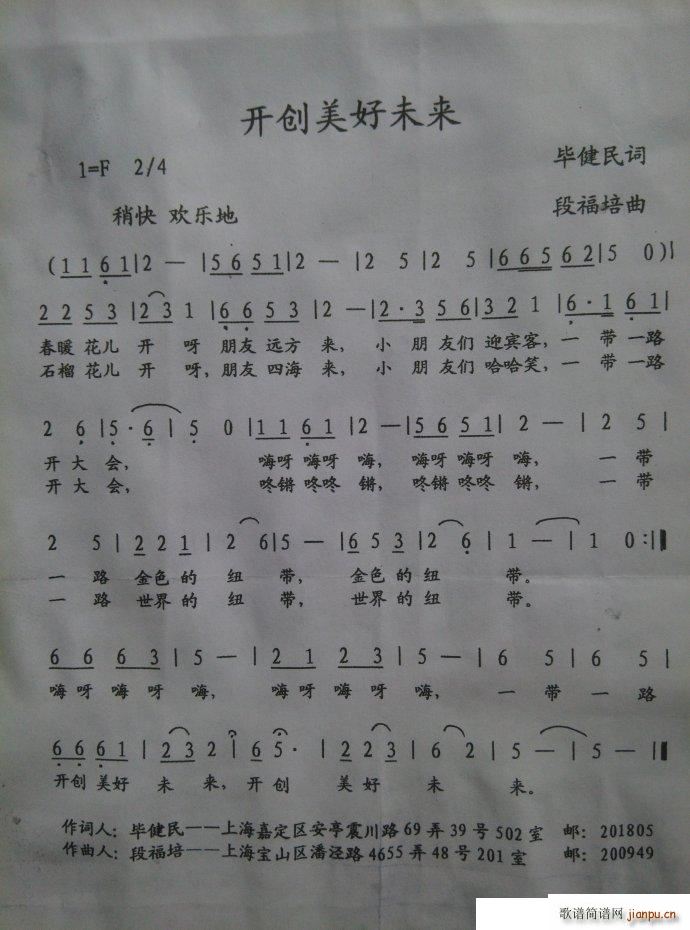 开创美好未来
1=F 2/4 毕健民词
稍快 欢乐地 段福培曲
(1 1 6 1|2 — |5 6 5 1|2 — |2 5 |2 5 |6 6 5 6 2|5 0)|
2 2 5 3 |2 3 1 |6 6 5 3 |2 — |2·3 5 6|3 2 1 |6·1 6 1|
春暖 花儿 开 呀 朋友 远方 来, 小 朋 友们 迎宾客, 一 带 一路
石榴 花儿 开 呀, 朋友 四海 来, 小 朋 友们 哈哈笑, 一 带 一路
2 6 |5·6 | 5 0 |1 1 6 1 |2 — |5 6 5 1 |2 — | 2 5 |
开 大 会, 嗨呀 嗨呀 嗨, 嗨呀 嗨呀 嗨, 一 带
开 大 会, 咚锵 咚咚 锵, 咚锵 咚咚 锵, 一 带
2 5 | 2 2 1 | 2 6|5 — |6 5 3 |2 6 |1 — |1 0:‖
一 路 金色 的 纽 带, 金色 的 纽 带。
一 路 世界 的 纽 带, 世界 的 纽 带。
6 6 6 3 | 5 — | 2 1 2 3 | 5 — | 6 5 |6 5 |
嗨 呀 嗨 呀 嗨, 嗨 呀 嗨 呀 嗨, 一 带 一 路
6 6 6 1 | 2 3 2 | 6 5· | 2 2 3 | 6 2 | 5 — | 5 — ‖
开创 美好 未 来, 开 创 美 好 未 来。
作词人: 毕健民——上海嘉定区安亭震川路 69 弄 39 号 502 室 邮: 201805
作曲人: 段福培——上海宝山区潘泾路 4655 弄 48 号 201 室 邮: 200949
歌谱简谱网 jianpu.cn